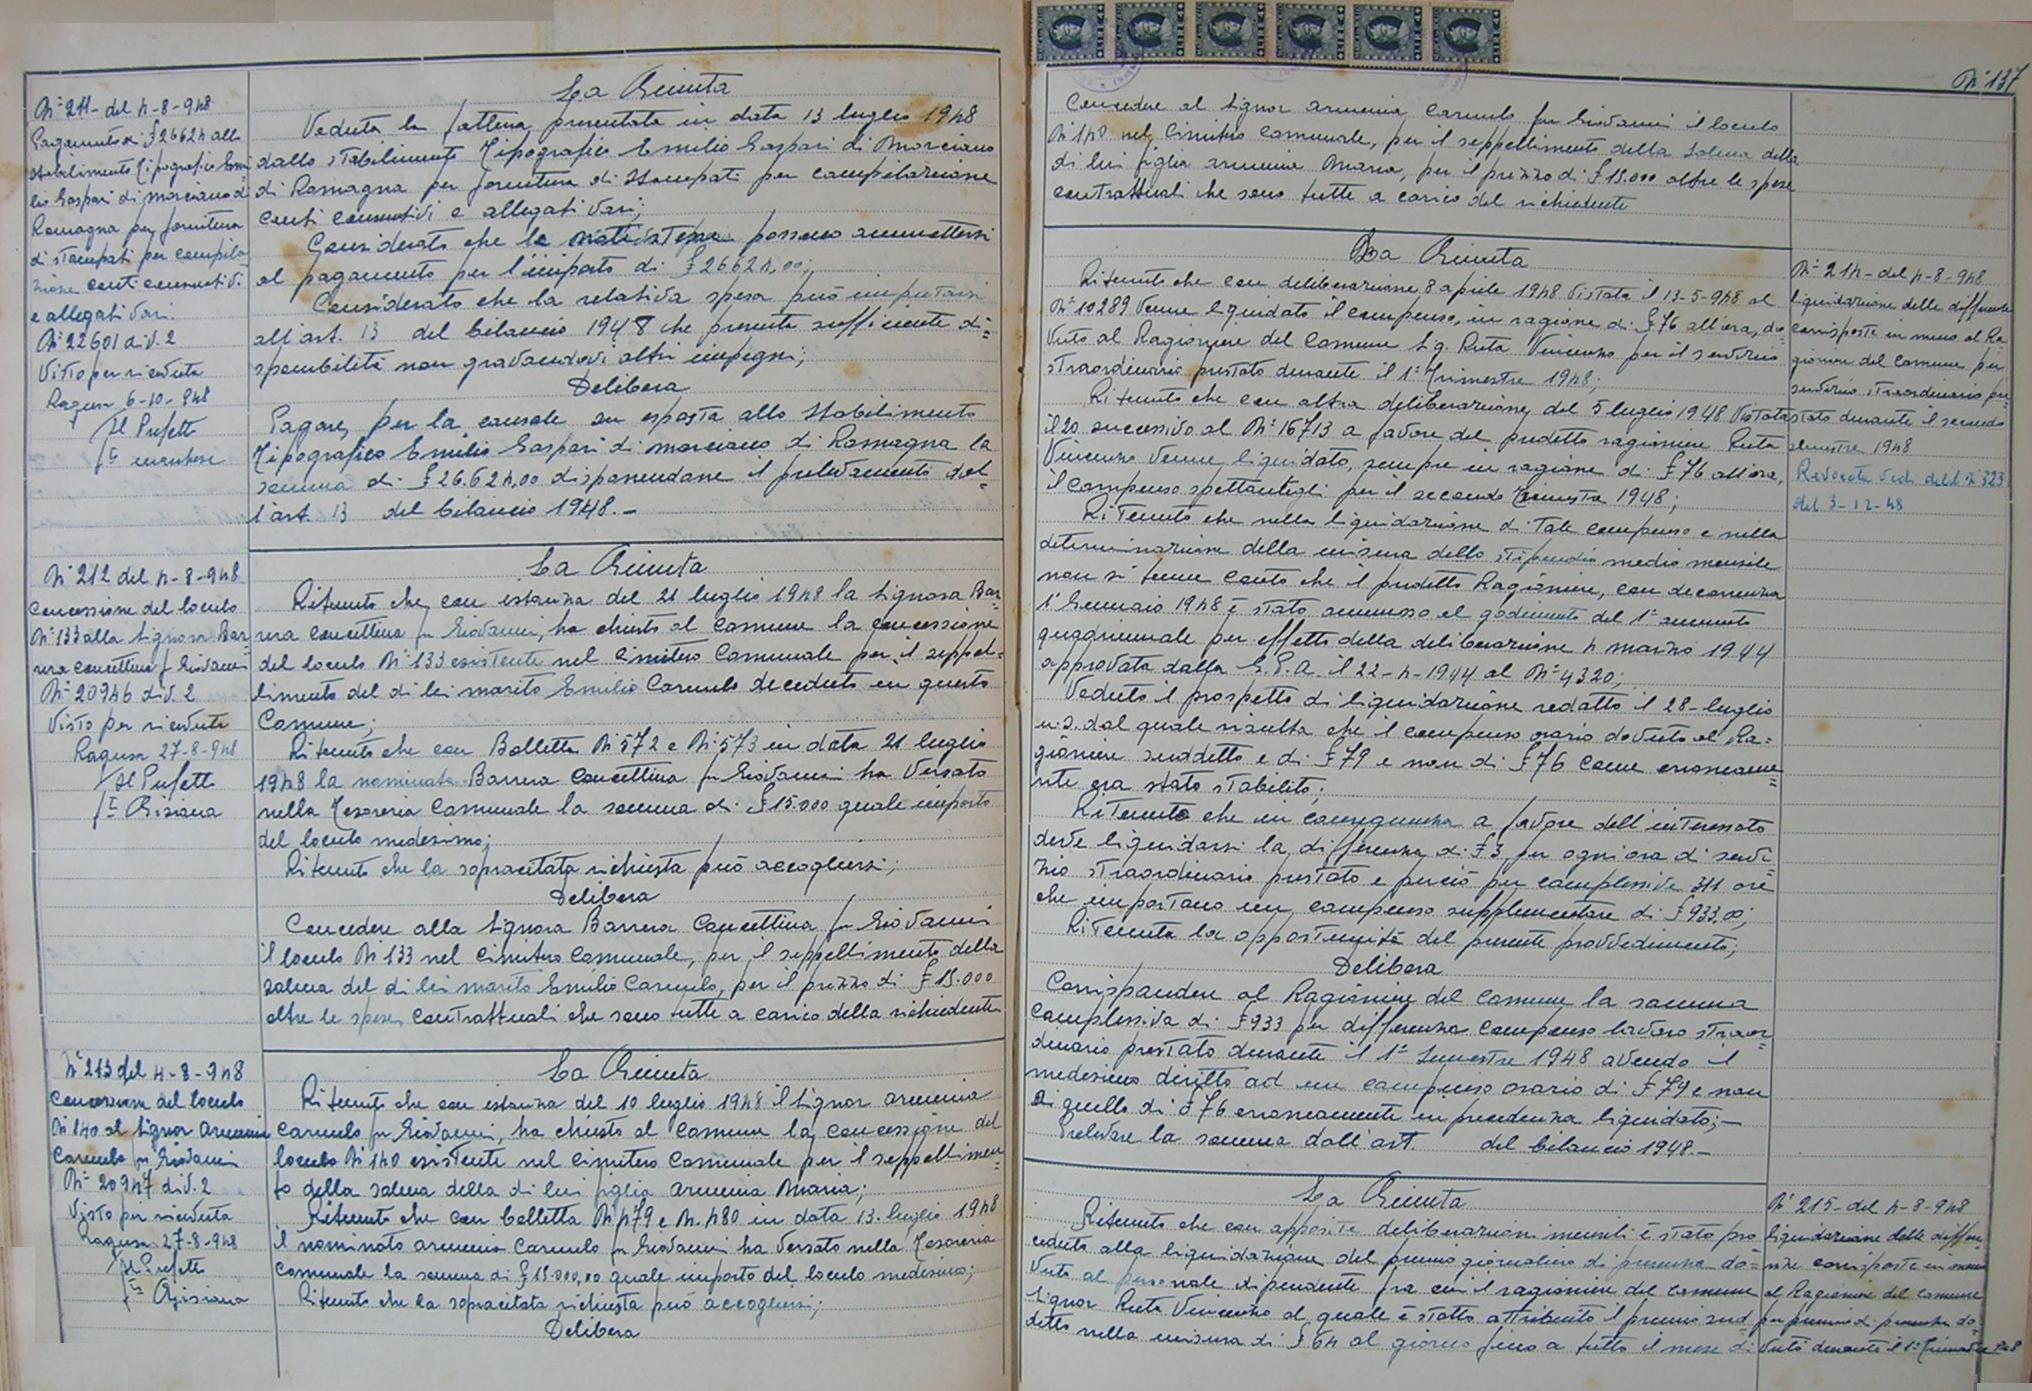 N° 211 - del 4-8-948
Pagamento di £ 26624 allo
stabilimento tipografico Emi
lio Gaspari di Morciano di
Romagna per fornitura
di stampati per compila-
zione conti consuntivi
e allegati vari.
N° 22601 div. 2
Visto per ricevuta
Ragusa 6-10-948
Il Prefetto
La Giunta
Veduta la fattura presentata in data 13 luglio 1948
dallo stabilimento Tipografico Emilio Gaspari di Morciano
di Romagna per fornitura di stampati per compilazione
conti consuntivi e allegati vari;
Considerato che le possono ammettersi
al pagamento per l'importo di £ 26624,00;
Considerato che la relativa spesa può imputarsi
all'art. 13 del bilancio 1948 che presenta sufficiente di=
sponibilità non gravandovi altri impegni;
Delibera
Pagare, per la causale su esposta allo stabilimento
Tipografico Emilio Gaspari di Morciano di Romagna la
somma di £ 26.624,00 disponendone il prelevamento dal=
l'art. 13 del bilancio 1948.-
N° 212 del 4-8-948
Concessione del loculo
N° 133 alla Signora Bar-
rera Concettina fu Giovanni
N° 20946 div. 2
Visto per ricevuta
Ragusa 27-8-948
Il Prefetto
La Giunta
Ritenuto che con istanza del 21 luglio 1948 la Signora Bar-
rera Concettina fu Giovanni, ha chiesto al Comune la concessione
del loculo N° 133 esistente nel Cimitero Comunale per il seppel-
limento del di lei marito Emilio Carmelo deceduto in questo
Comune;
Ritenuto che con Bolletta N° 572 e N° 573 in data 21 luglio
1948 la nominata Barrera Concettina fu Giovanni ha versato
nella Tesoreria Comunale la somma di £ 15.000 quale importo
del loculo medesimo;
Ritenuto che la sopracitata richiesta può accogliersi;
Delibera
Concedere alla Signora Barrera Concettina fu Giovanni
il loculo N° 133 nel Cimitero Comunale, per il seppellimento della
salma del di lei marito Emilio Carmelo, per il prezzo di £ 15.000
oltre le spese contrattuali che sono tutte a carico della richiedente
N° 213 del 4-8-948
Concessione del loculo
N° 140 al Signor Armenia
Carmelo fu Giovanni
N° 20947 div. 2
Visto per ricevuta
Ragusa 27-8-948
Il Prefetto
La Giunta
Ritenuto che con istanza del 10 luglio 1948 il Signor Armenia
Carmelo fu Giovanni, ha chiesto al Comune la concessione del
loculo N° 140 esistente nel Cimitero Comunale per il seppellimen-
to della salma della di lui figlia Armenia Maria;
Ritenuto che con bolletta N° 479 e N. 480 in data 13 luglio 1948
il nominato Armenia Carmelo fu Giovanni ha versato nella Tesoreria
Comunale la somma di £ 15.000,00 quale importo del loculo medesimo;
Ritenuto che la sopracitata richiesta può accogliersi;
Delibera
N° 137
Concedere al Signor Armenia Carmelo fu Giovanni il loculo
N° 140 nel Cimitero Comunale, per il seppellimento della salma della
di lui figlia Armenia Maria, per il prezzo di £ 15.000 oltre le spese
contrattuali che sono tutte a carico del richiedente
La Giunta
Ritenuto che con deliberazione 8 aprile 1948 vistata il 13-5-948 al
N° 10289 venne liquidato il compenso, in ragione di £ 76 all'ora, do
vuto al Ragioniere del Comune Sig. Ruta Vincenzo per il servizio
straordinario prestato durante il 1° Trimestre 1948;
Ritenuto che con altra deliberazione, del 5 luglio 1948 vistata
il 20 successivo al N° 16713 a favore del predetto ragioniere Ruta
Vincenzo venne liquidato, sempre in ragione di £ 76 all'ora,
il compenso spettantegli per il secondo Trimestre 1948;
Ritenuto che nella liquidazione di tale compenso e nella
determinazione della misura dello stipendio medio mensile
non si tenne conto che il predetto Ragioniere, con decorrenza
1° Gennaio 1948 è stato ammesso al godimento del 1° aumento
quadriennale per effetto della deliberazione 4 marzo 1944
approvata dalla G.P.A. il 22-4-1944 al N° 4320;
Veduto il prospetto di liquidazione redatto il 28 luglio
u.s. dal quale risulta che il compenso orario dovuto al Ra=
gioniere suddetto è di £ 79 e non di £ 76 come erroneame=
nte era stato stabilito;
Ritenuto che in conseguenza a favore dell'interessato
deve liquidarsi la differenza di £ 3 per ogni ora di servi=
zio straordinario prestato e perciò per complessive 311 ore
che importano un compenso supplementare di £ 933,00;
Ritenuta la opportunità del presente provvedimento;
Delibera
Corrispondere al Ragioniere del Comune la somma
complessiva di £ 933 per differenza compenso lavoro straor=
dinario prestato durante il 1° Semestre 1948 avendo il
medesimo diritto ad un compenso orario di £ 79 e non
di quello di £ 76 erroneamente in precedenza liquidato;-
Prelevare la somma dall'art. del bilancio 1948.-
N° 214 - del 4-8-948
liquidazione delle differenze
corrisposte in meno al Ra-
gioniere del Comune per
servizio straordinario pre-
stato durante il secondo
semestre 1948
Revocata vedi delib. N° 323
del 3-12-48
La Giunta
Ritenuto che con apposite deliberazioni mensili è stato pro
ceduto alla liquidazione del premio giornaliero di presenza do=
vuto al personale dipendente fra cui il ragioniere del Comune
Signor Ruta Vincenzo al quale è stato attribuito il premio sud
detto nella misura di £ 64 al giorno fino a tutto il mese di
N° 215 - del 4-8-948
liquidazione delle differen-
nze corrisposte in meno
al Ragioniere del Comune
per premio di presenza do-
vuto durante il 1° Semestre 948